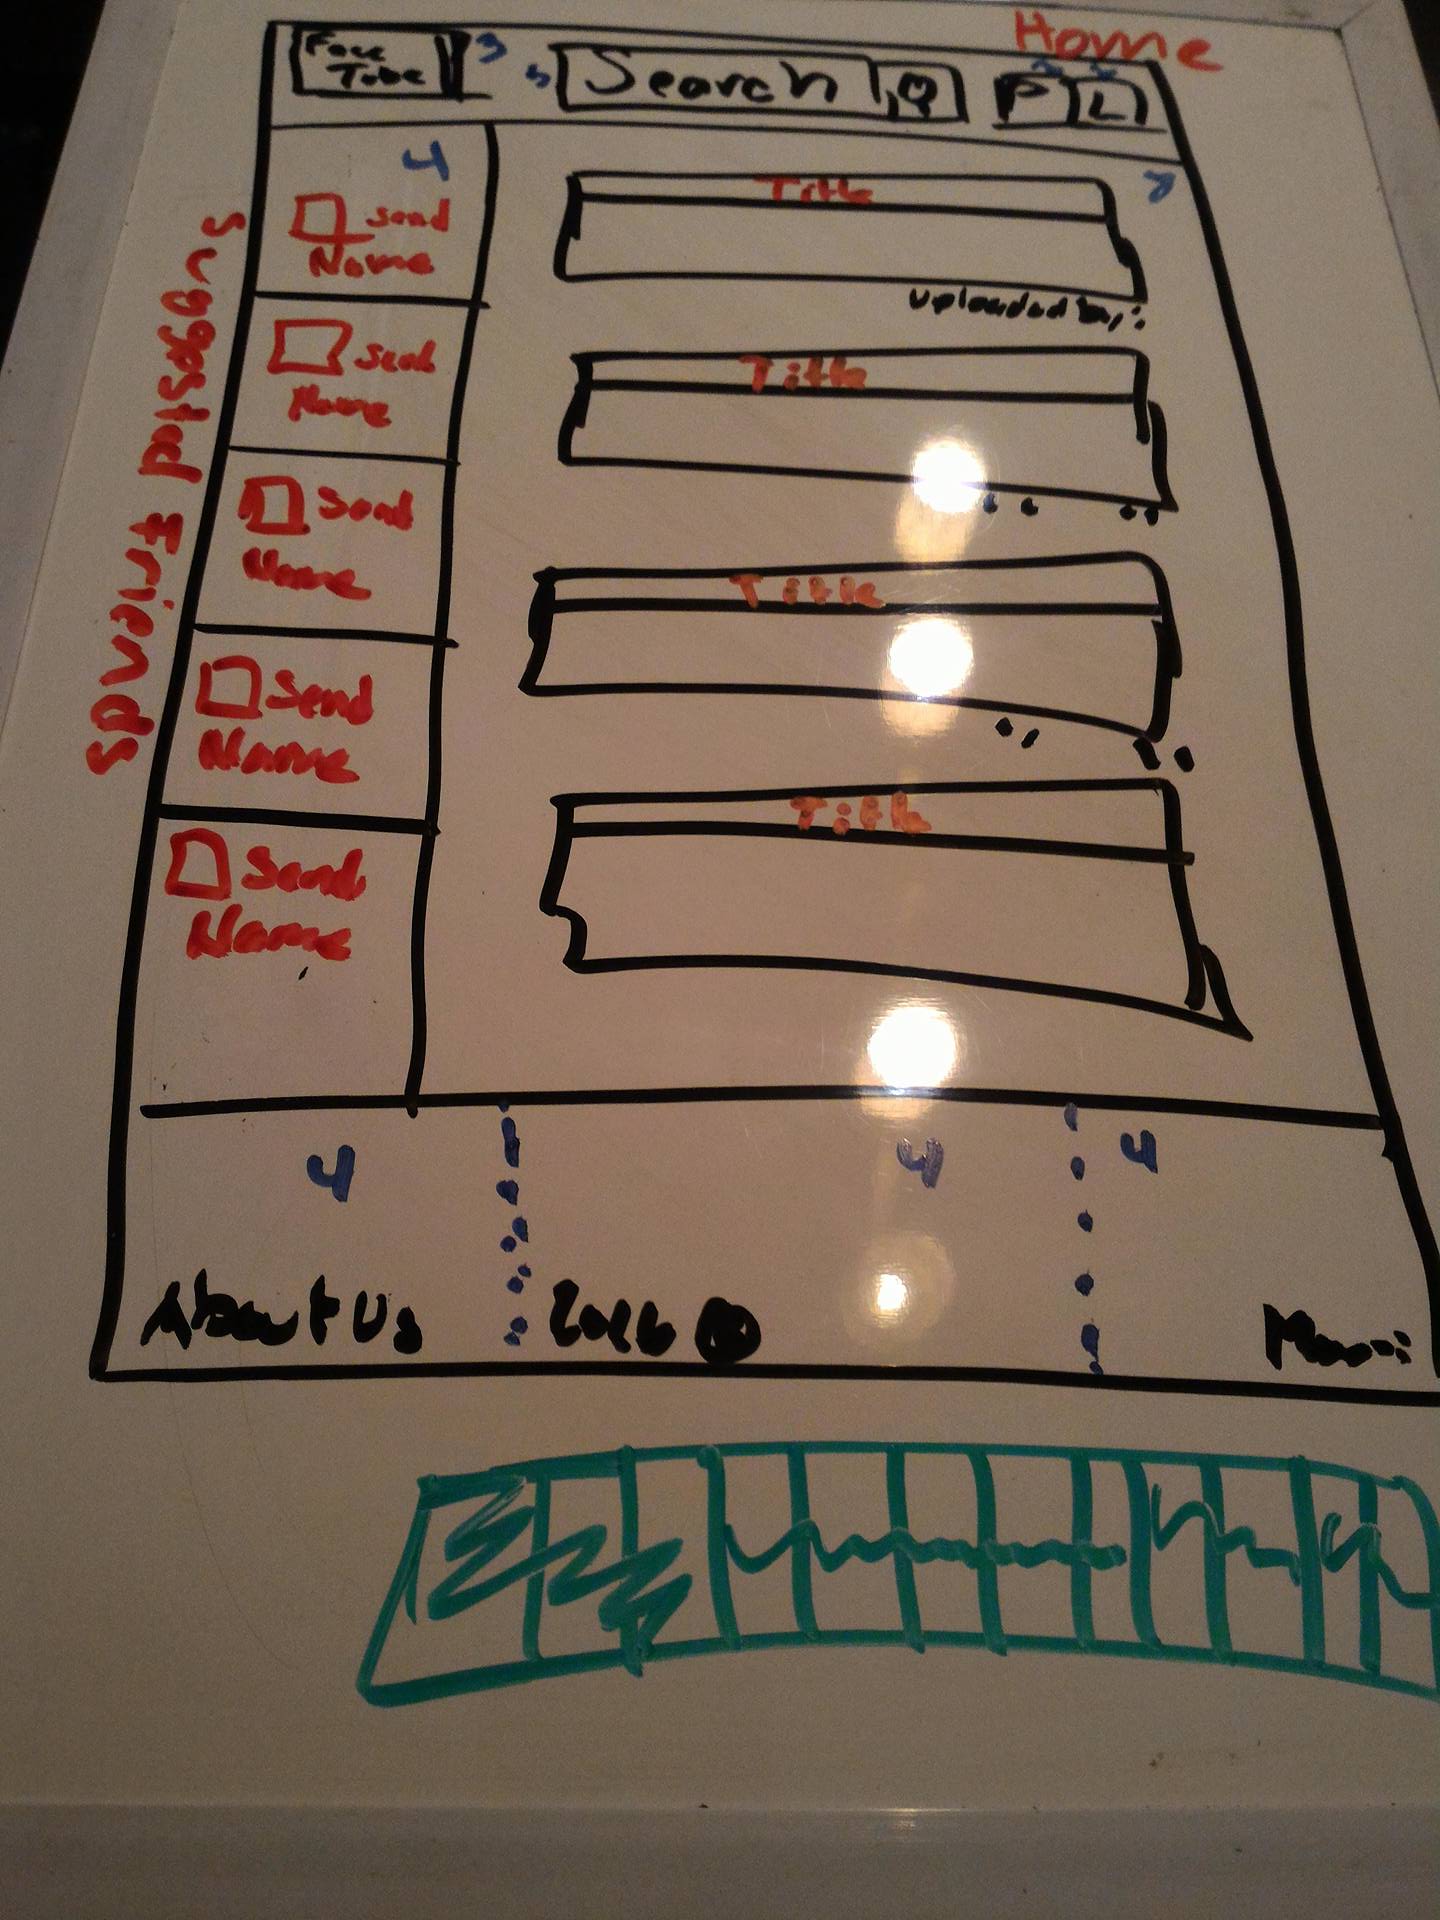 Home
Face
Tube
3
5
Search
P
L
Suggestid friends
4
send
Name
send
Name
send
Name
Send
Name
Send
Name
Title
uploaded by:
Title
Title
Title
4
4
4
About Us